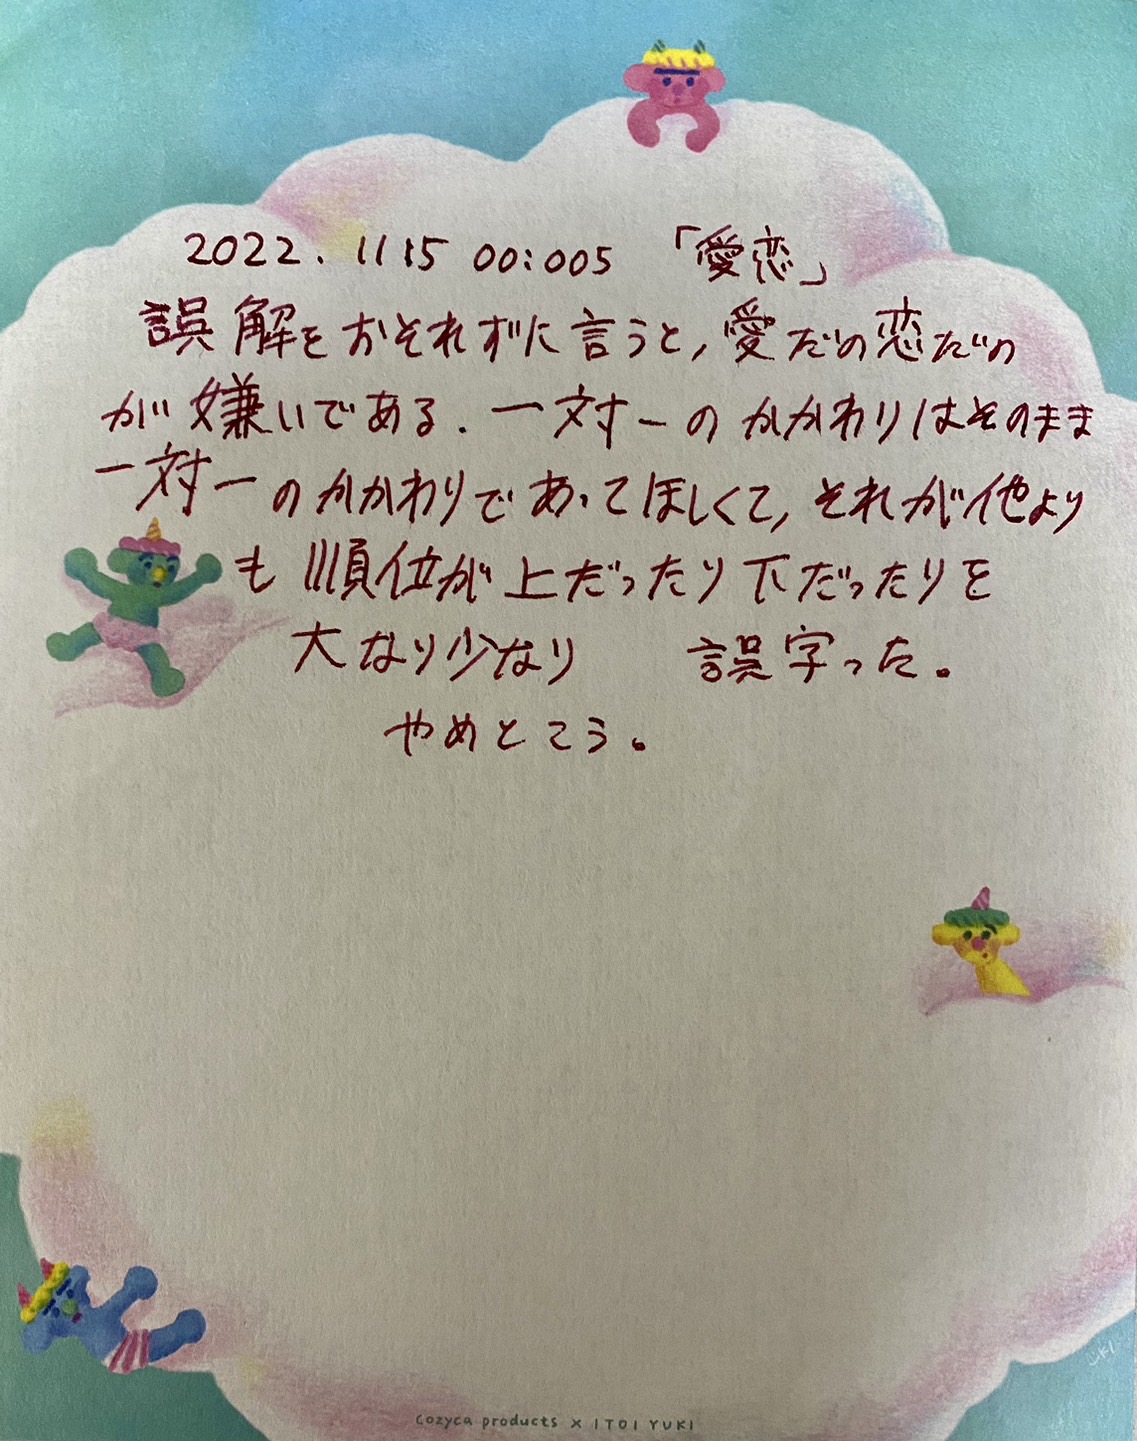 2022. 11 15 00:005 「愛恋」
誤解をおそれずに言うと, 愛だの恋だの
が嫌いである. 一対一のかかわりはそのまま
一対一のかかわりであってほしくて, それが他より
も順位が上だったり下だったりを
大なり少なり 誤字った。
やめとこう。
Cozyca products x ITOI YUKI